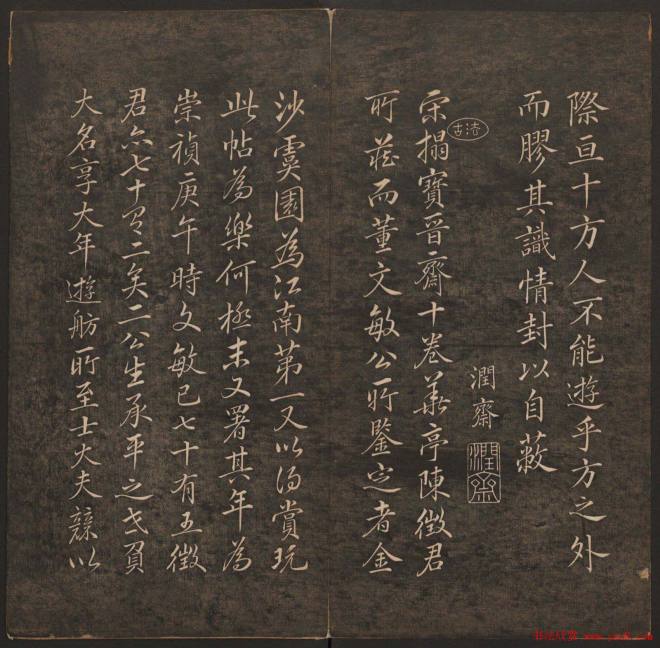 際亘十方人不能遊乎方之外
而膠其識情封以自蔽
潤齋
潤齋
古法
宋搨寶晉齋十卷華亭陳徵君
所藏而董文敏公所鑒定者金
沙虞園為江南第一又以得賞玩
此帖為樂何極末又署其年為
崇禎庚午時文敏已七十有五徵
君亦七十有二矣二公生承平之世負
大名享大年遊舫所至士大夫競以